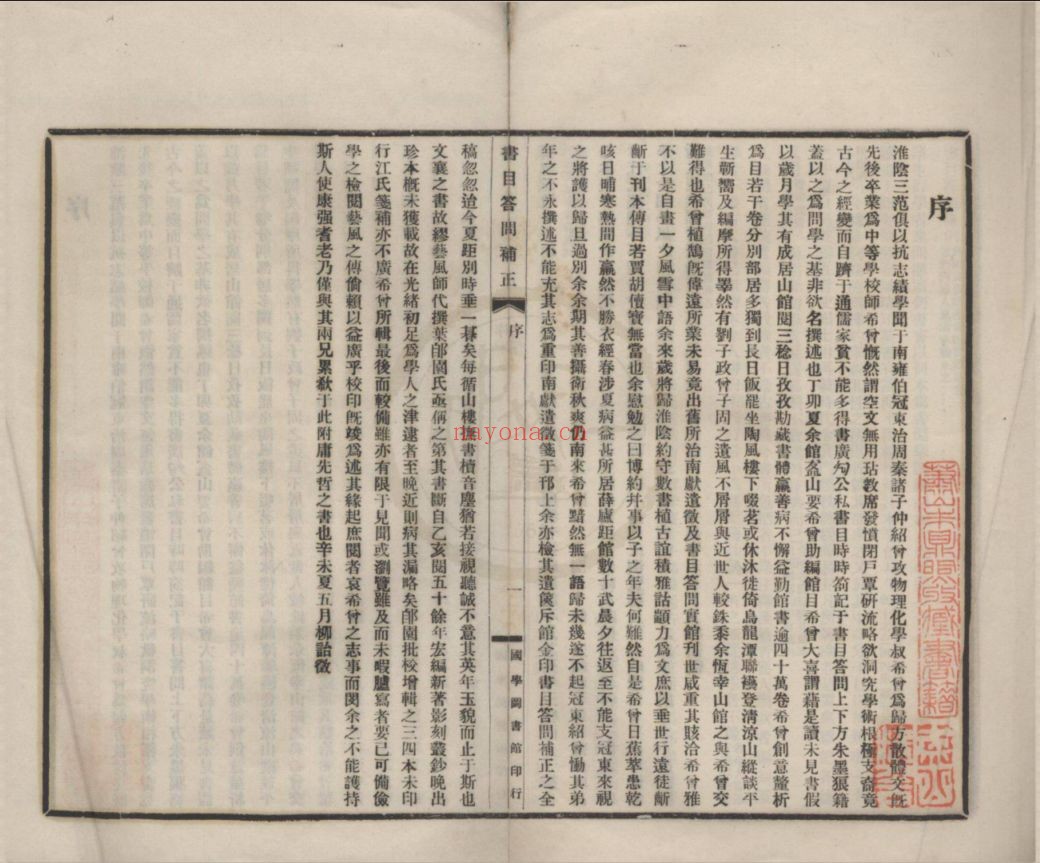 序
淮陰三范俱以抗志績學聞于南雍伯冠東治周秦諸子仲紹曾攻物理化學叔希曾爲歸方散體文旣
先後卒業爲中等學校師希曾慨然謂空文無用玷敎席發憤閉戶覃研流略欲洞究學術根極支裔竟
古今之經變而自躋于通儒家貧不能多得書廣勼公私書目時時箚記于書目答問上下方朱墨狼籍
蓋以之爲問學之基非欲名撰述也丁卯夏余館盋山要希曾助編館目希曾大喜謂藉是讀未見書假
以歲月學其有成居山館閱三稔日孜孜勘藏書體羸善病不懈益勤館書逾四十萬卷希曾創意釐析
爲目若干卷分別部居多獨到長日飯罷坐陶風樓下啜茗或休沐徙倚烏龍潭聯襼登淸涼山縱談平
生蘄嚮及編摩所得罤然有劉子政曾子固之遺風不屑屑與近世人較銖黍余恆幸山館之與希曾交
難得也希曾植鵠旣偉遠所業未易竟出舊所治南獻遺徵及書目答問實館刊世咸重其賅洽希曾雅
不以是自畫一夕風雪中語余來歲將歸淮陰約守數書植古誼積雅詁顓力爲文庶以垂世行遠徒斷
斷于刊本傳目若賈胡儥寶無當也余慰勉之曰博約幷事以子之年夫何難然自是希曾日蕉萃患乾
咳日晡寒熱間作羸然不勝衣經春涉夏病益甚所居薛廬距館數十武晨夕往返至不能支冠東來視
之將護以歸且過別余余期其善攝衛秋爽仍南來希曾黯然無一語歸未幾遂不起冠東紹曾慟其弟
年之不永撰述不能充其志爲重印南獻遺徵箋于邗上余亦檢其遺篋斥館金印書目答問補正之全
書目答問補正
序
一
國學圖書館印行
稿忽忽迨今夏距別時垂一朞矣每循山樓撫書檟音塵猶若接視聽誠不意其英年玉貌而止于斯也
文襄之書故繆藝風師代撰葉郋園氏亟稱之第其書斷自乙亥閱五十餘年宏編新著影刻叢鈔晚出
珍本槪未獲載故在光緖初足爲學人之津逮者至晚近則病其漏略矣郋園批校增輯之三四本未印
行江氏箋補亦不廣希曾所輯最後而較備雖亦有限于見聞或瀏覽雖及而未暇臚寫者要已可備儉
學之檢閱藝風之傳倘賴以益廣乎校印旣竣爲述其緣起庶閱者哀希曾之志事而閔余之不能護持
斯人使康强耆老乃僅與其兩兄累欷于此附庸先哲之書也辛未夏五月柳詒徵
nayona.cn